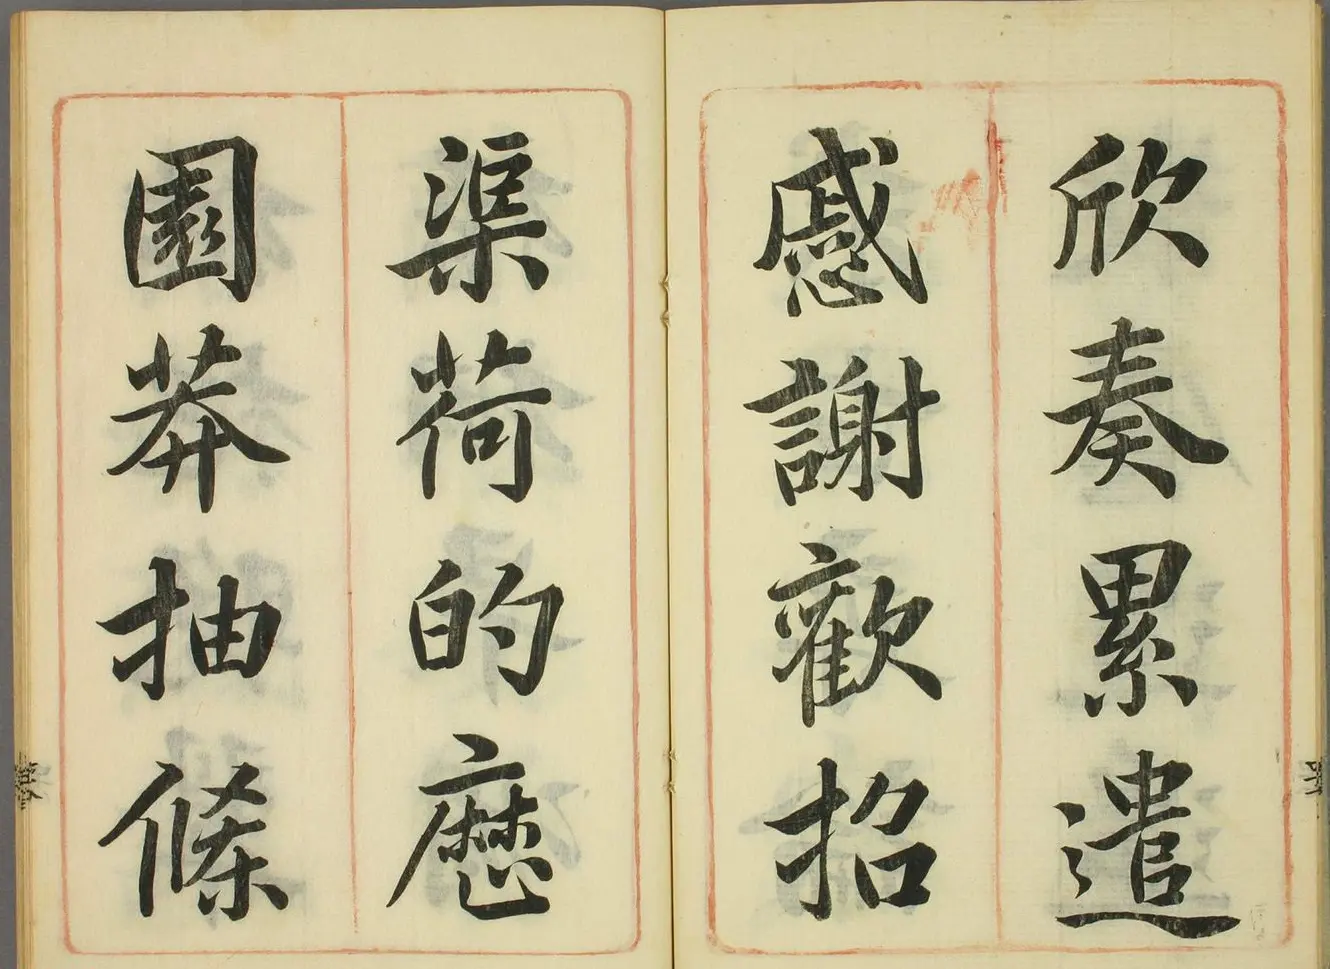 欣奏累遣
慼謝歡招
渠荷的歷
園莽抽條